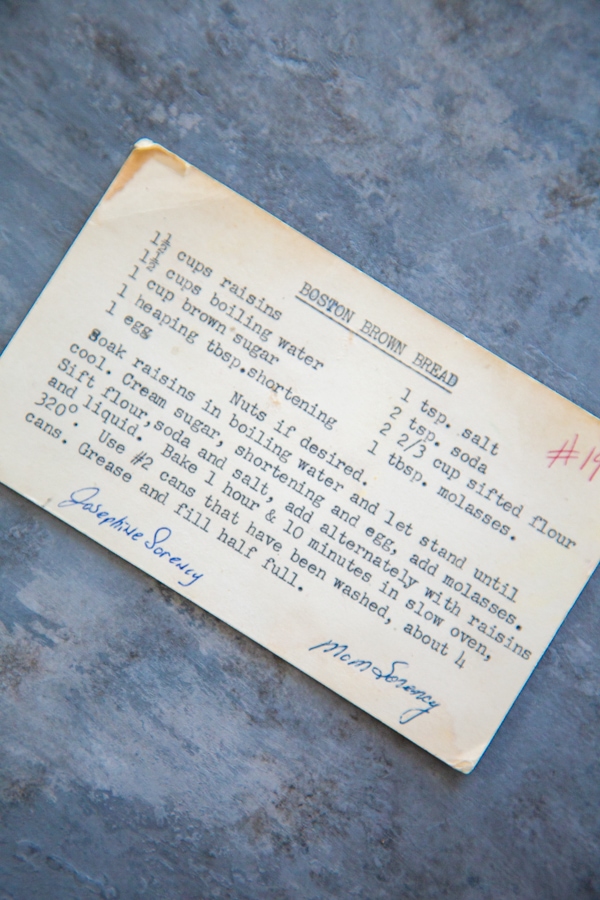 BOSTON BROWN BREAD
1½ cups raisins
1½ cups boiling water
1 cup brown sugar
1 heaping tbsp.shortening
1 egg
1 tsp. salt
2 tsp. soda
2 2/3 cup sifted flour
1 tbsp. molasses.
Nuts if desired.
Soak raisins in boiling water and let stand until
cool. Cream sugar, shortening and egg, add molasses.
Sift flour,soda and salt, add alternately with raisins
and liquid. Bake 1 hour & 10 minutes in slow oven,
320°. Use #2 cans that have been washed, about 4
cans. Grease and fill half full.
Josephine Sorency
Mom Sorency